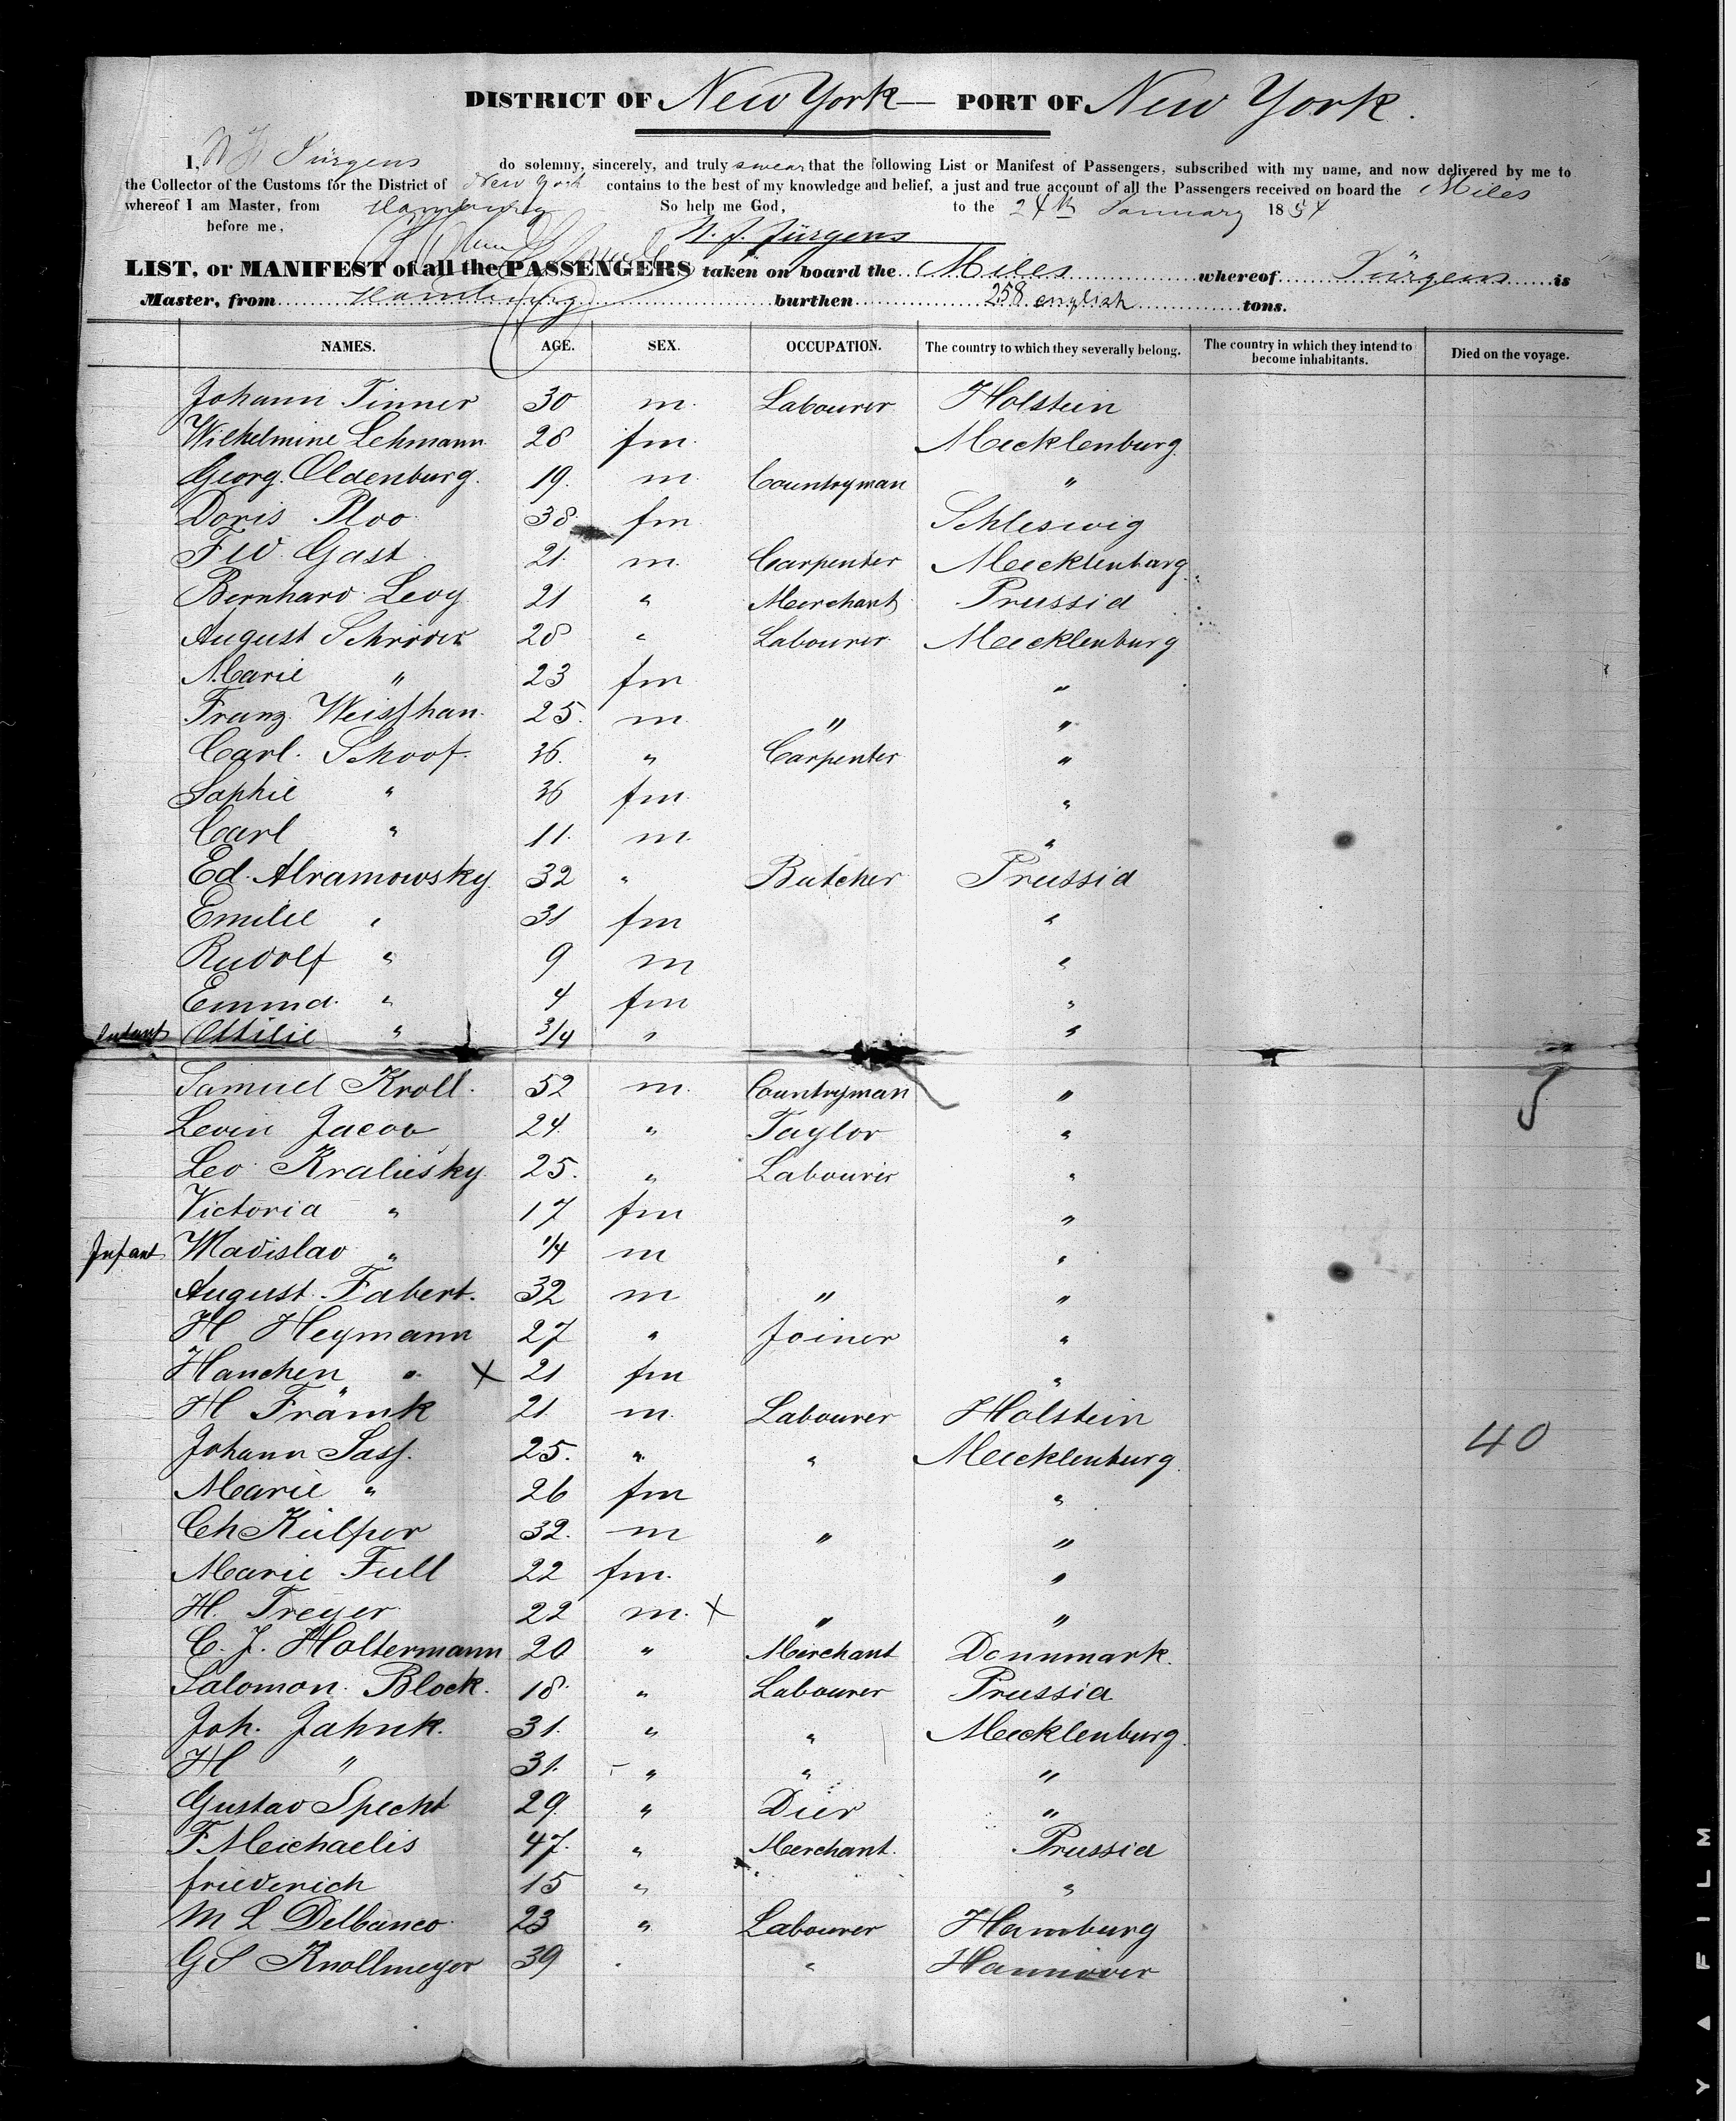 DISTRICT OF New York — PORT OF New York.
I, Jürgens do solemny, sincerely, and truly swear that the following List or Manifest of Passengers, subscribed with my name, and now delivered by me to
the Collector of the Customs for the District of New York contains to the best of my knowledge and belief, a just and true account of all the Passengers received on board the Miles
whereof I am Master, from Hamburg So help me God, to the 24th January 1854
before me, Jürgens
LIST, or MANIFEST of all the PASSENGERS taken on board the Miles whereof Jürgens is
Master, from Hamburg burthen 258 english tons.
NAMES. AGE. SEX. OCCUPATION. The country to which they severally belong. The country in which they intend to become inhabitants. Died on the voyage.
Johann Tinner 30 m. Labourer Holstein
Wilhelmine Lehmann 28 fm. Mecklenburg
Georg. Oldenburg. 19. m. Countryman "
Doris Ploo 38. fm Schleswig
F W Gast 21. m. Carpenter Mecklenburg
Bernhard Levy 21 " Merchant Prussia
August Schröder 28 " Labourer Mecklenburg
Marie " 23 fm "
Franz Weisshan. 25. m " "
Carl. Schoof. 36. " Carpenter "
Sophie " 36 fm "
Carl " 11. m. "
Ed. Abramowsky 32 " Butcher Prussia
Emilie " 31 fm "
Rudolf " 9 m "
Emma. " 4 fm "
Infant Ottilie " 3/4 " "
Samuel Kroll. 52 m. Countryman "
Levin Jacob 24 " Taylor "
Leo Kraliesky 25. " Labourer "
Victoria " 17 fm "
Infant Wladislav " 1/4 m "
August Fabert. 32 m " "
H Heymann 27 " Joiner "
Hanchen " x 21 fm "
H Främk 21 m. Labourer Holstein
Johann Sass. 25. " " Mecklenburg. 40
Marie " 26 fm "
Ch Külper 32. m " "
Marie Full 22 fm. "
H. Treyer 22 m. x " "
C. J. Holtermann 20 " Merchant Dennmark.
Salomon. Block. 18. " Labourer Prussia
Joh. Jahnk. 31. " " Mecklenburg.
H " 31. " " "
Gustav Specht 29 " Dier "
F Meichaelis 47. " Merchant. Prussia
friederich 15 " " "
M L Delbanco 23 " Labourer Hamburg
G S Knollmeyer 39 " " Hannover